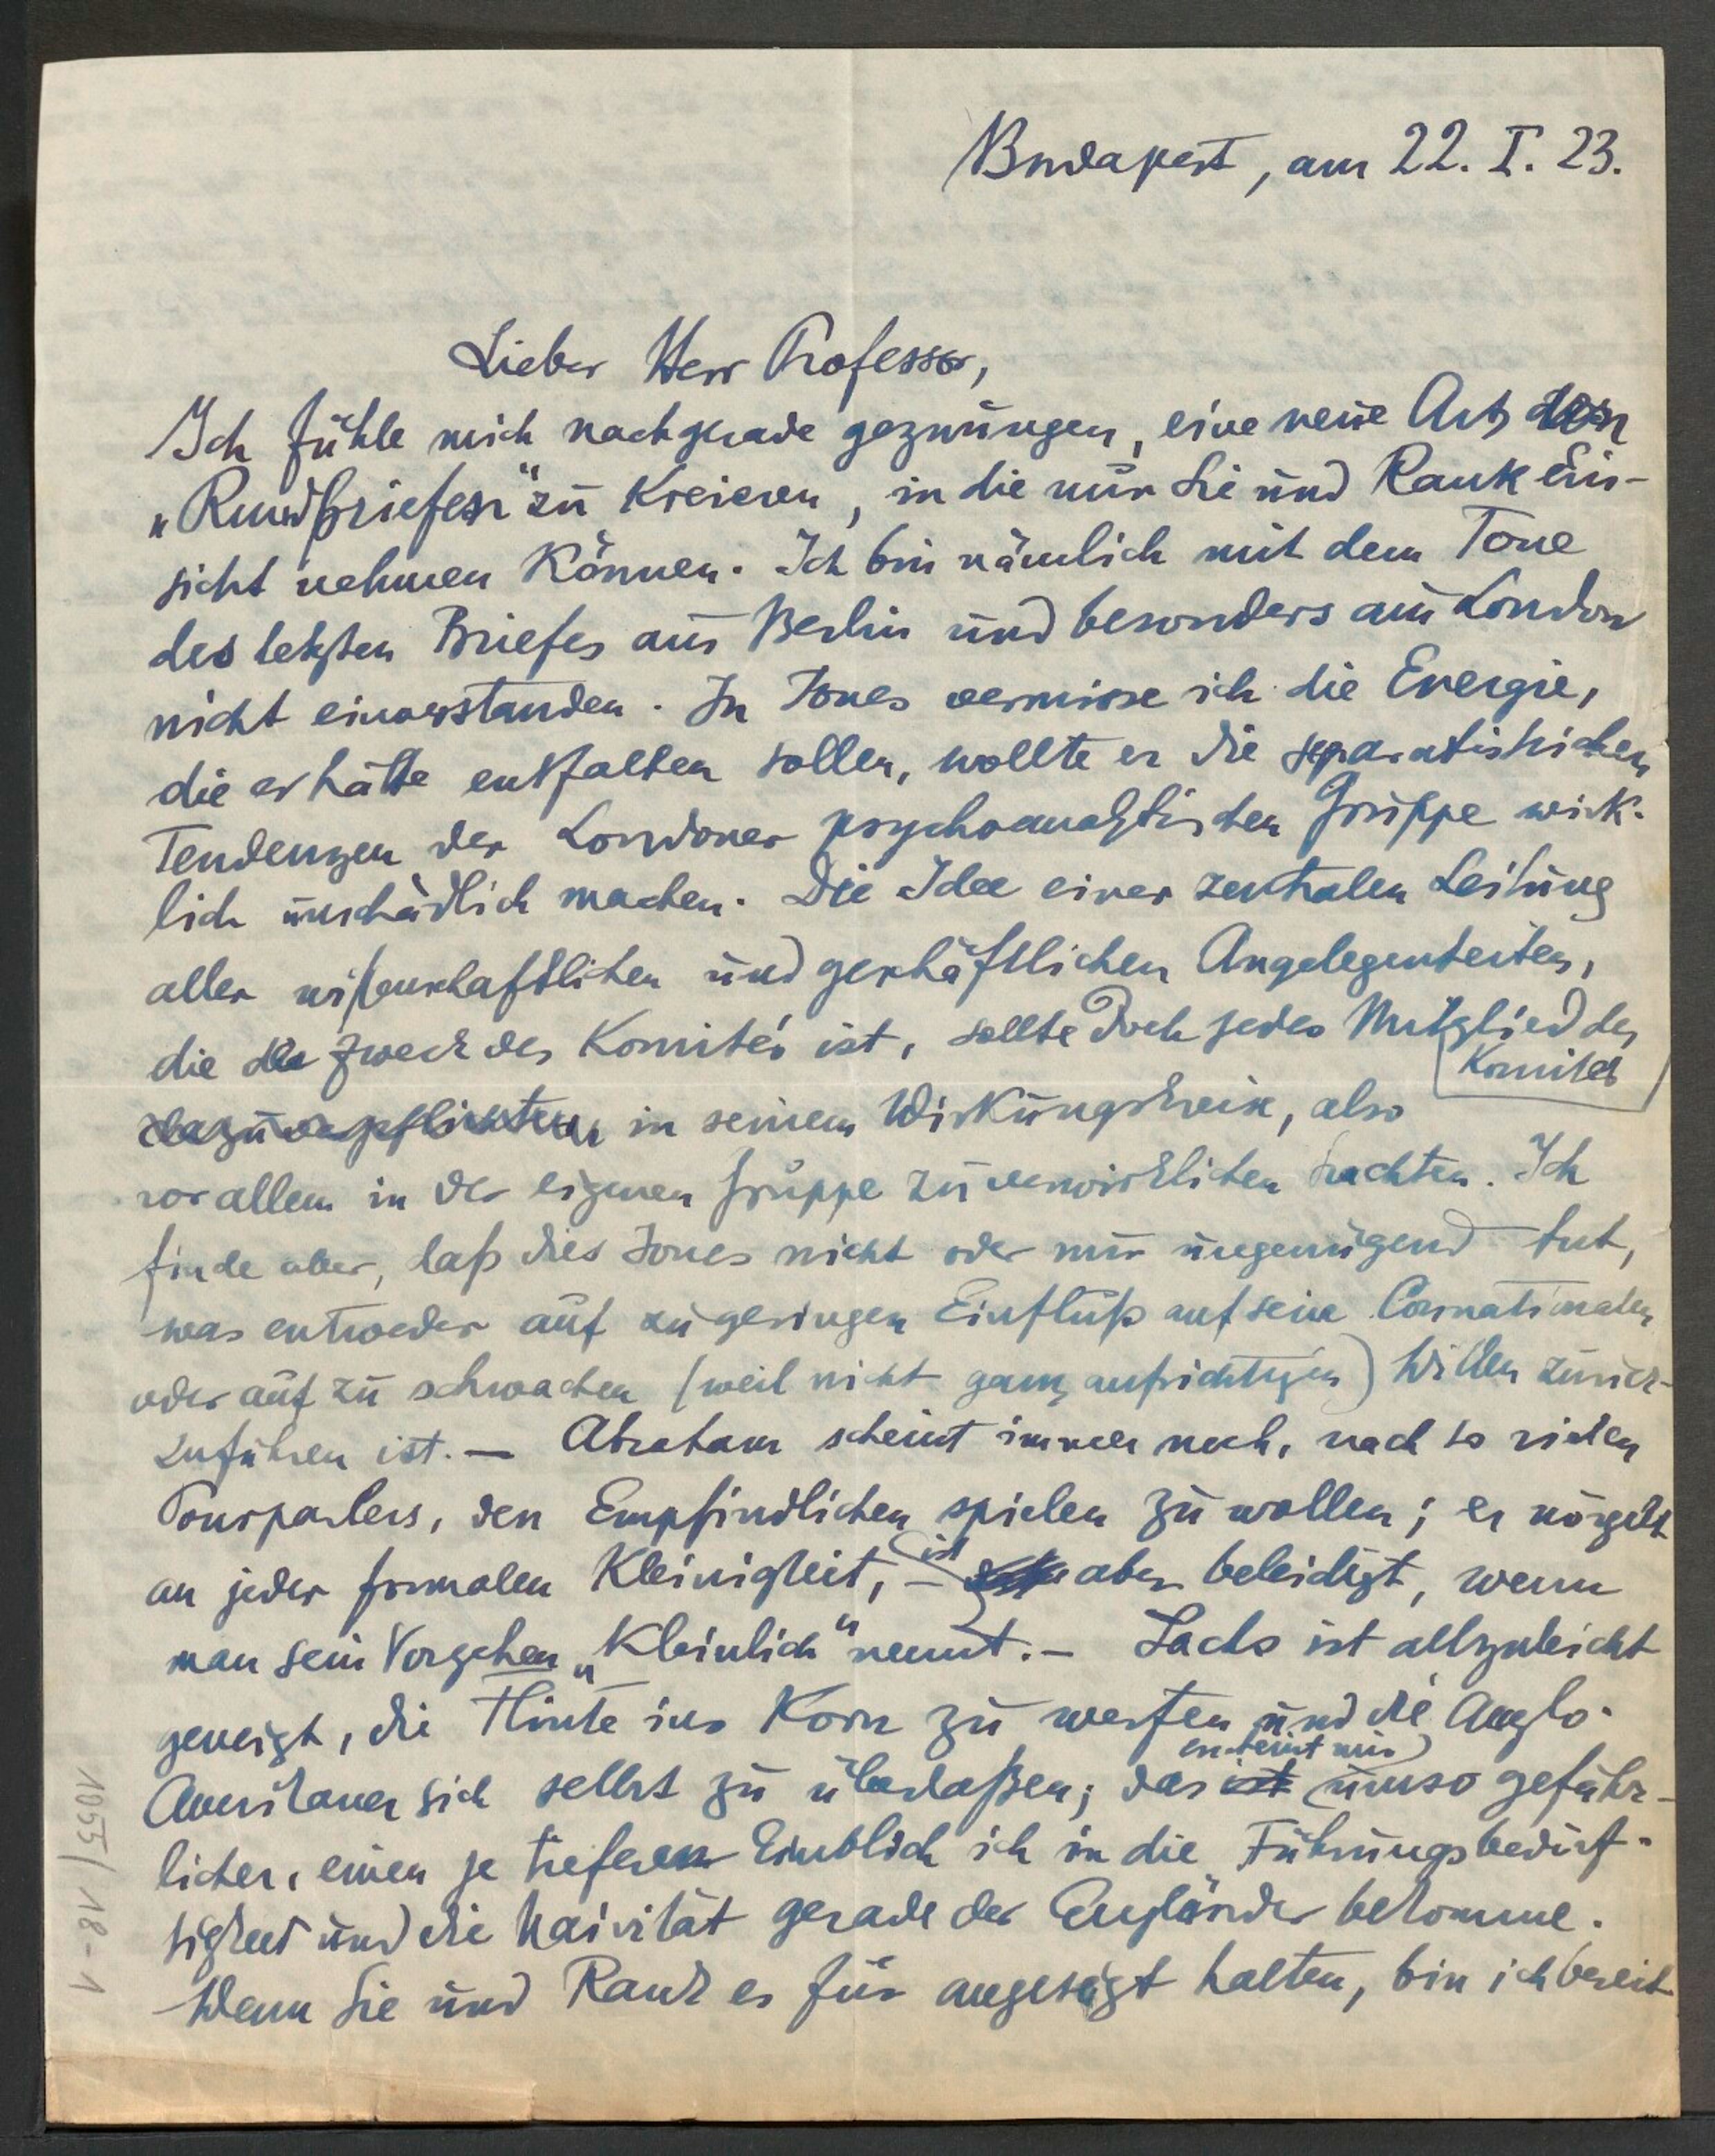 Budapest, am 22. I. 23.
Lieber Herr Professor,
Ich fühle mich nachgerade gezwungen, eine neue Art von
„Rundbriefen“ zu kreieren, in die nur Sie und Rank Ein-
sicht nehmen können. Ich bin nämlich mit dem Tone
des letzten Briefes aus Berlin und besonders aus London
nicht einverstanden. In Jones vermisse ich die Energie,
die er hätte entfalten sollen, wollte er die separatistischen
Tendenzen der Londoner psychoanalytischen Gruppe wirk-
lich unschädlich machen. Die Idee einer zentralen Leitung
aller wissenschaftlichen und geschäftlichen Angelegenheiten,
die der Zweck des Komités ist, sollte doch jedes Mitglied des
Komités
dazu verpflichten in seinem Wirkungskreise, also
vor allem in der eigenen Gruppe zu verwirklichen trachten. Ich
finde aber, daß dies Jones nicht oder nur ungenügend tut,
was entweder auf zu geringen Einfluß auf seine Connationalen
oder auf zu schwachen (weil nicht ganz aufrichtigen) Willen zurück-
zuführen ist. — Abraham scheint immer noch, nach so vielen
Pourparlers, den Empfindlichen spielen zu wollen; er nörgelt
an jeder formalen Kleinigkeit, – ist aber beleidigt, wenn
man sein Vorgehen „kleinlich“ nennt. – Sachs ist allzuleicht
geneigt, die Flinte ins Korn zu werfen und die Anglo-
erscheint mir
Amerikaner sich selbst zu überlaßen; das ist umso gefähr-
licher, einen je tieferen Einblick ich in die Führungsbedürf-
tigkeit und die Naivität gerade der Engländer bekomme.
Wenn Sie und Rank es für angezeigt halten, bin ich bereit
1055/18-1